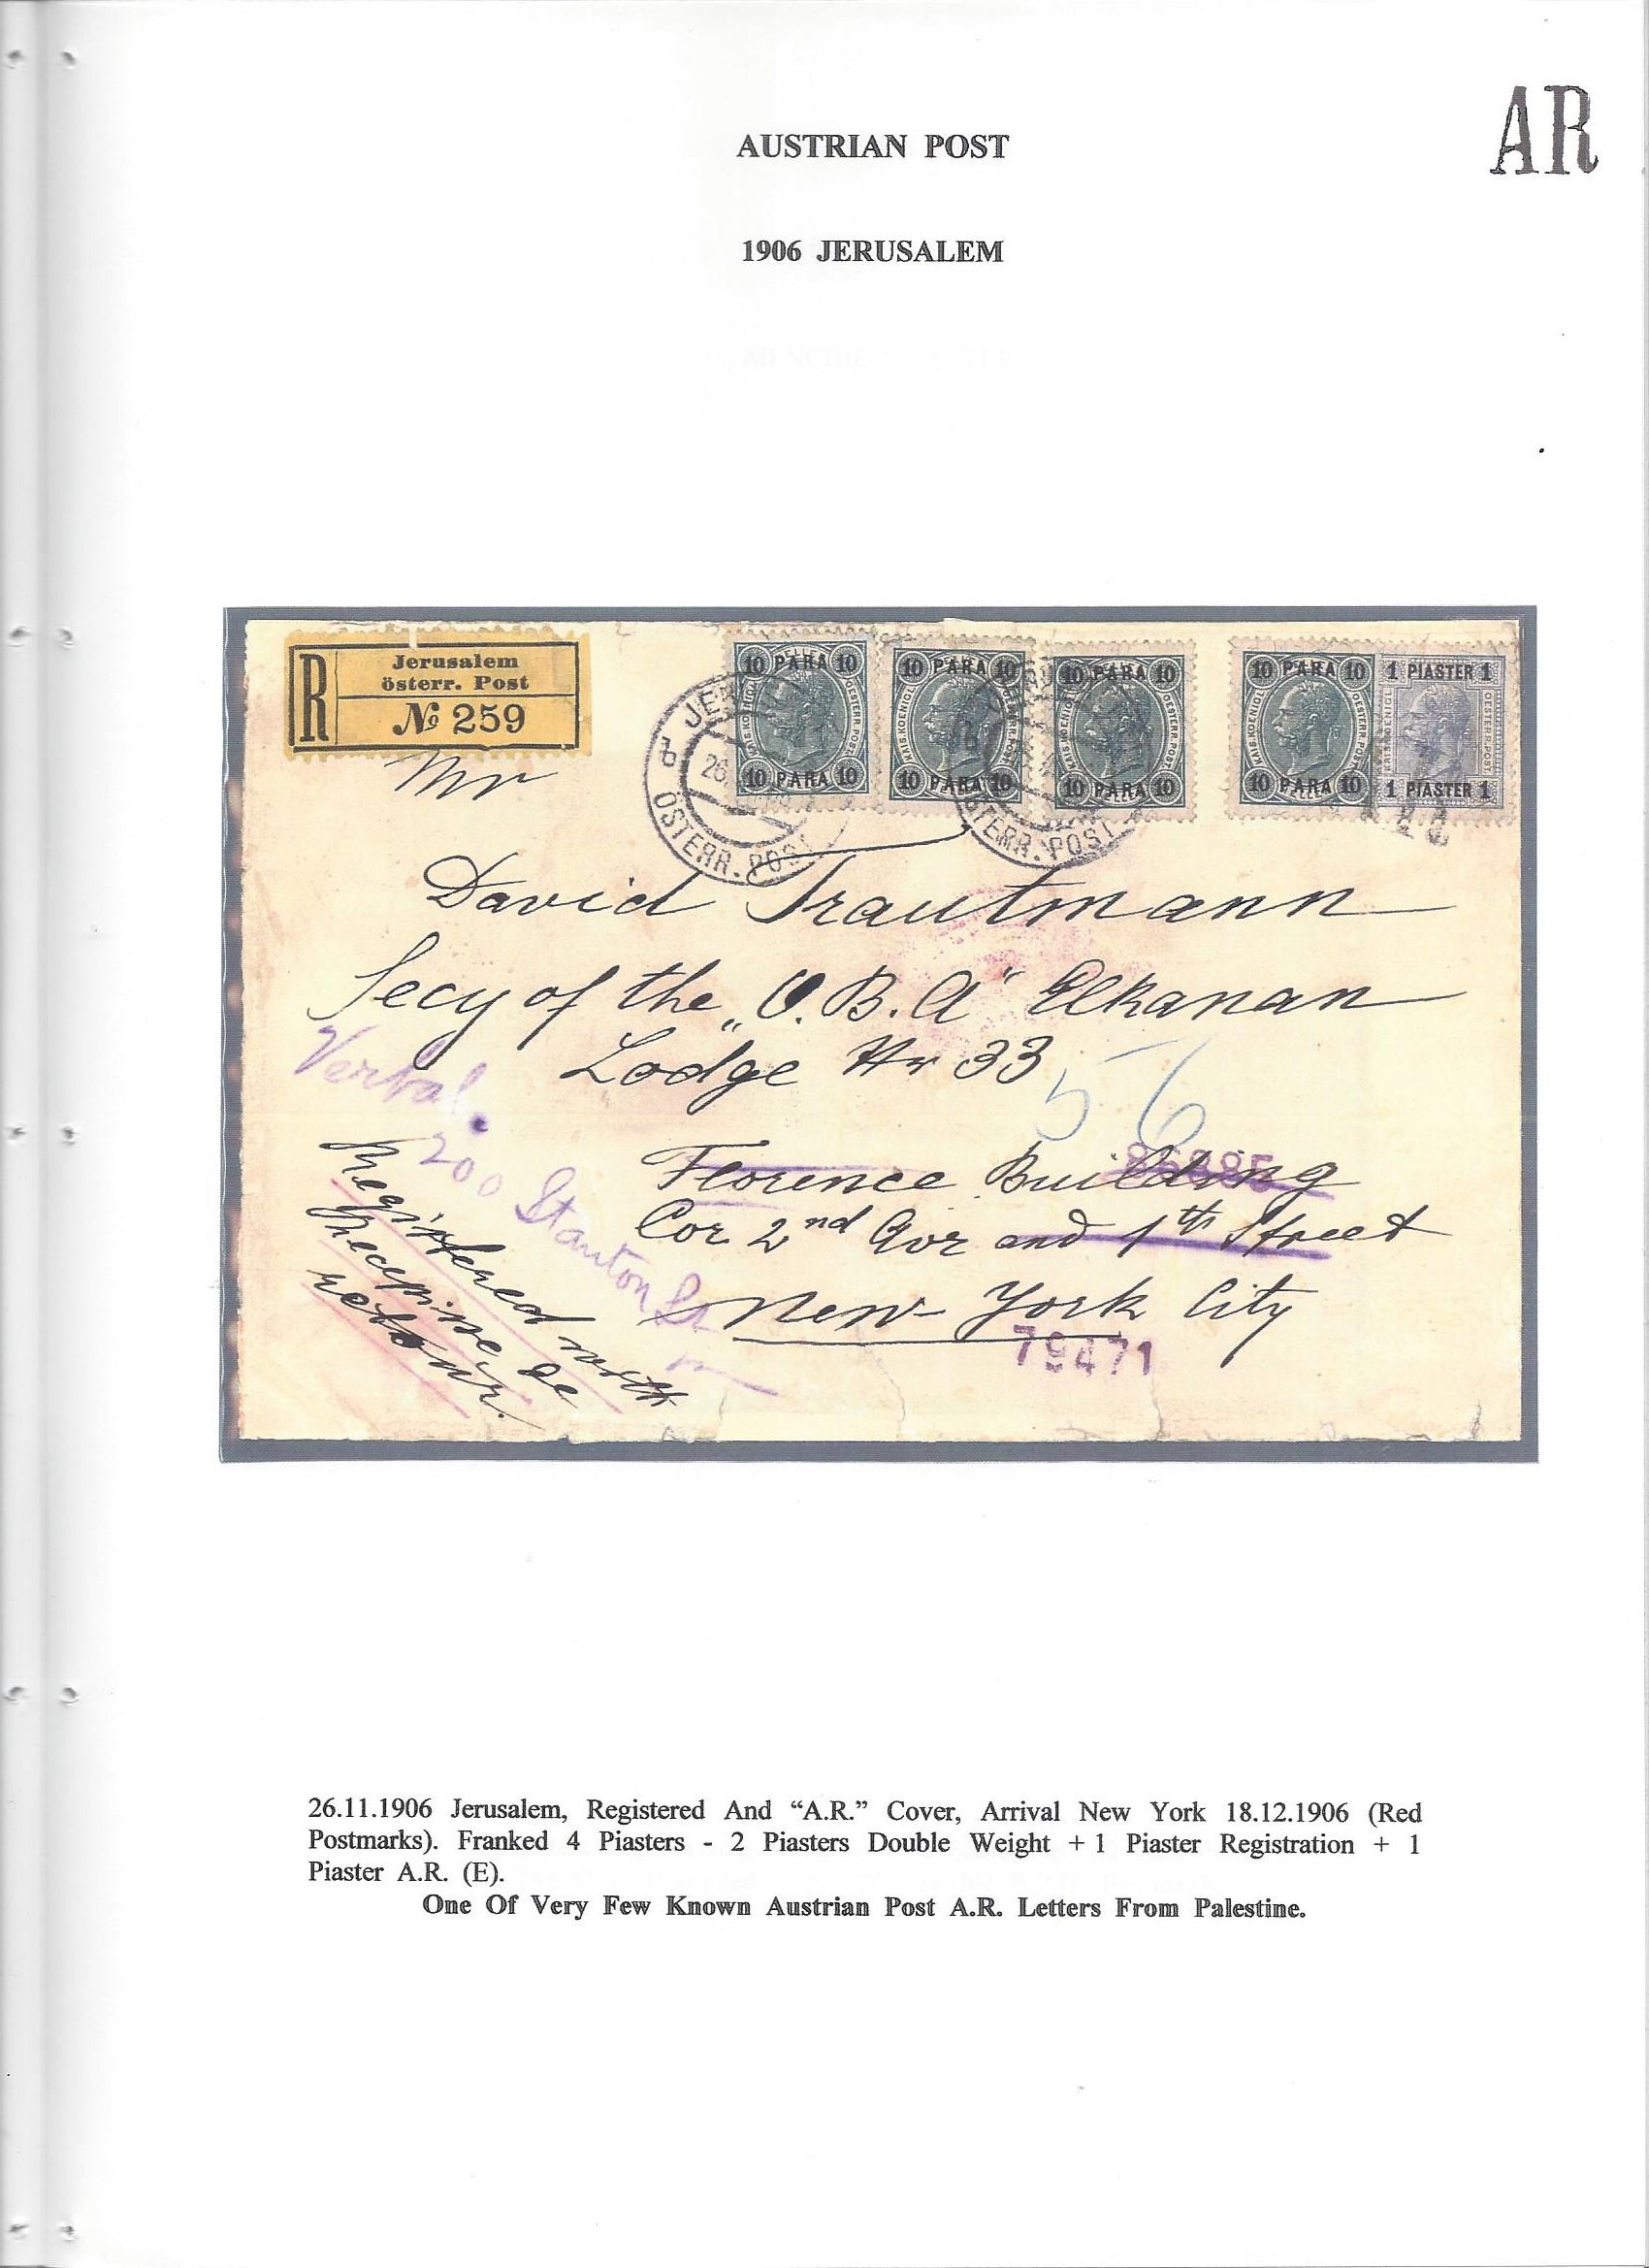 AR
AUSTRIAN POST
1906 JERUSALEM
R
Jerusalem
österr. Post
№ 259
10 PARA 10
10 PARA 10
10 PARA 10
10 PARA 10
10 PARA 10
10 PARA 10
10 PARA 10
10 PARA 10
1 PIASTER 1
1 PIASTER 1
26
ÖSTERR. POST
Mr
David Trautmann
Secy of the „O.B.A" Elkanan
Lodge Nr 33
56
Verbal.
200 Stanton St
Florence Building
Cor 2nd Ave and 1th Street
New-York City
79471
Registered with
Recepisse de
retour.
26.11.1906 Jerusalem, Registered And “A.R.” Cover, Arrival New York 18.12.1906 (Red
Postmarks). Franked 4 Piasters - 2 Piasters Double Weight + 1 Piaster Registration + 1
Piaster A.R. (E).
One Of Very Few Known Austrian Post A.R. Letters From Palestine.